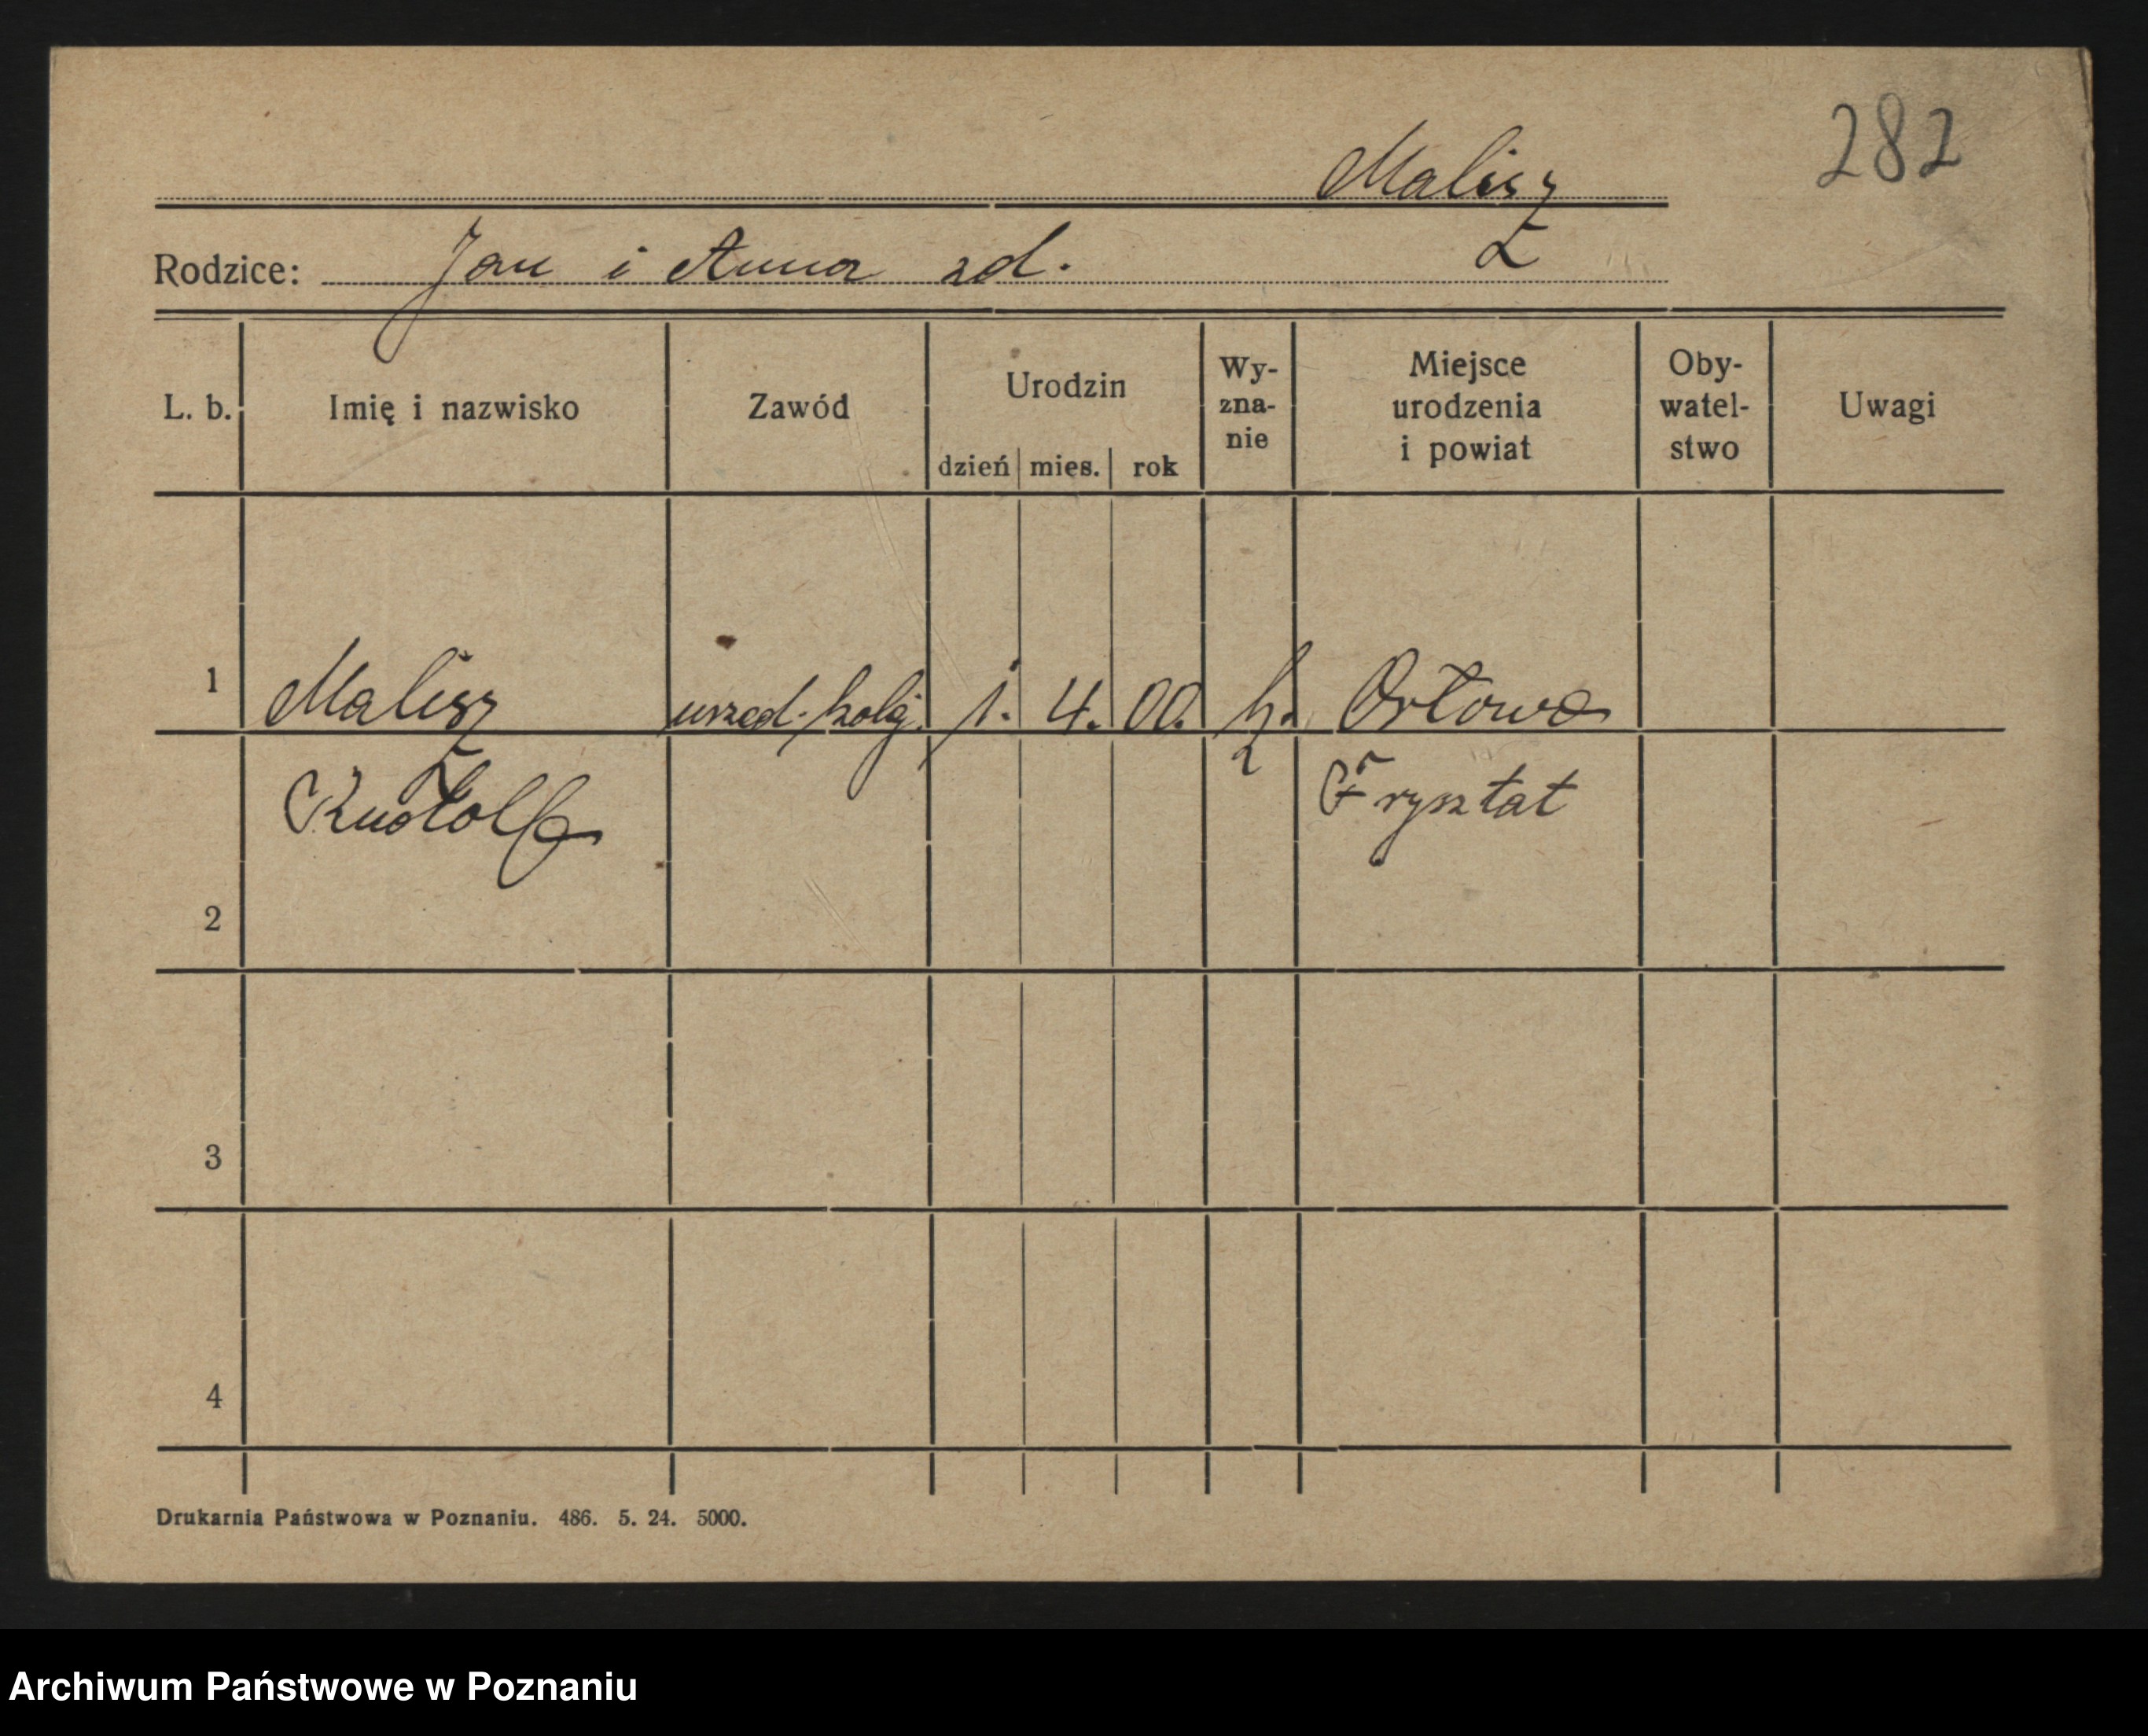 282
Malisz
Rodzice: Jan i Anna zd.
L. b. Imię i nazwisko Zawód Urodzin dzień mies. rok Wy- zna- nie Miejsce urodzenia i powiat Oby- watel- stwo Uwagi
1 Malisz urzęd. kolej. 1. 4. 00. Orłowa
Rudolf Frysztat
2
3
4
Drukarnia Państwowa w Poznaniu. 486. 5. 24. 5000.
Archiwum Państwowe w Poznaniu